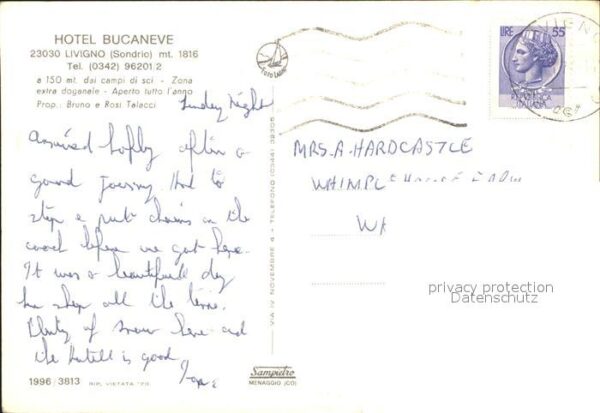 HOTEL BUCANEVE
23030 LIVIGNO (Sondrio) mt. 1816
Tel. (0342) 96201 2
a 150 mt. dai campi di sci - Zona
extra doganale - Aperto tutto l'anno
Prop.: Bruno e Rosi Talacci
Sunday Night
Arrived safely after a
good journey. Had to
stop & put chains on the
coach before we got here.
It was a beautiful day
sun all the time.
Plenty of snow here and
the hotell is good
1996/3813
RIP. VIETATA
VIA IV NOVEMBRE 4 - TELEFONO (0344) 32305
Sampietro
MENAGGIO (CO)
Foto
LIRE 55
REPUBBLICA
ITALIANA
MRS. A. HARDCASTLE
WHIMPLE HOUSE FARM
privacy protection
Datenschutz